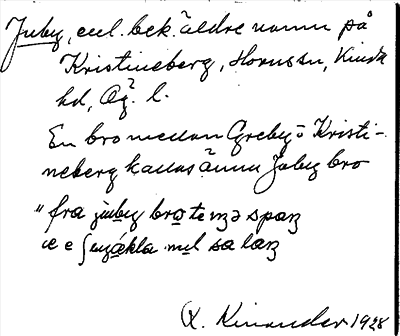 Juby, enl. bek. äldre namn på
Kristineberg, Horn sn, Kinda
hd, Ög. l.
En bro mellan Greby o Kristi-
neberg kallas ännu Juby bro
"fra juby bro te
sa
K. Kinander 1928